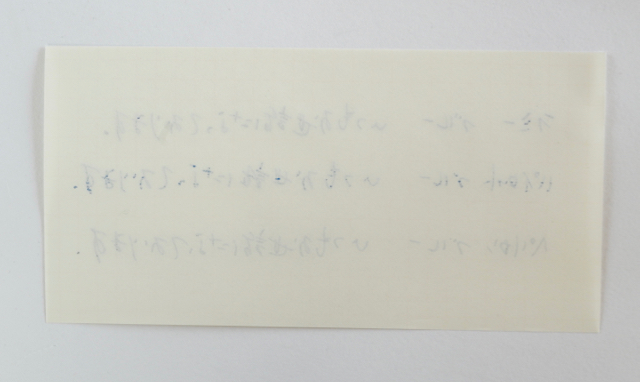 ラミー ブルー いつもお世話になっております。
パイロット ブルー いつもお世話になっております。
ペリカン ブルー いつもお世話になっております。